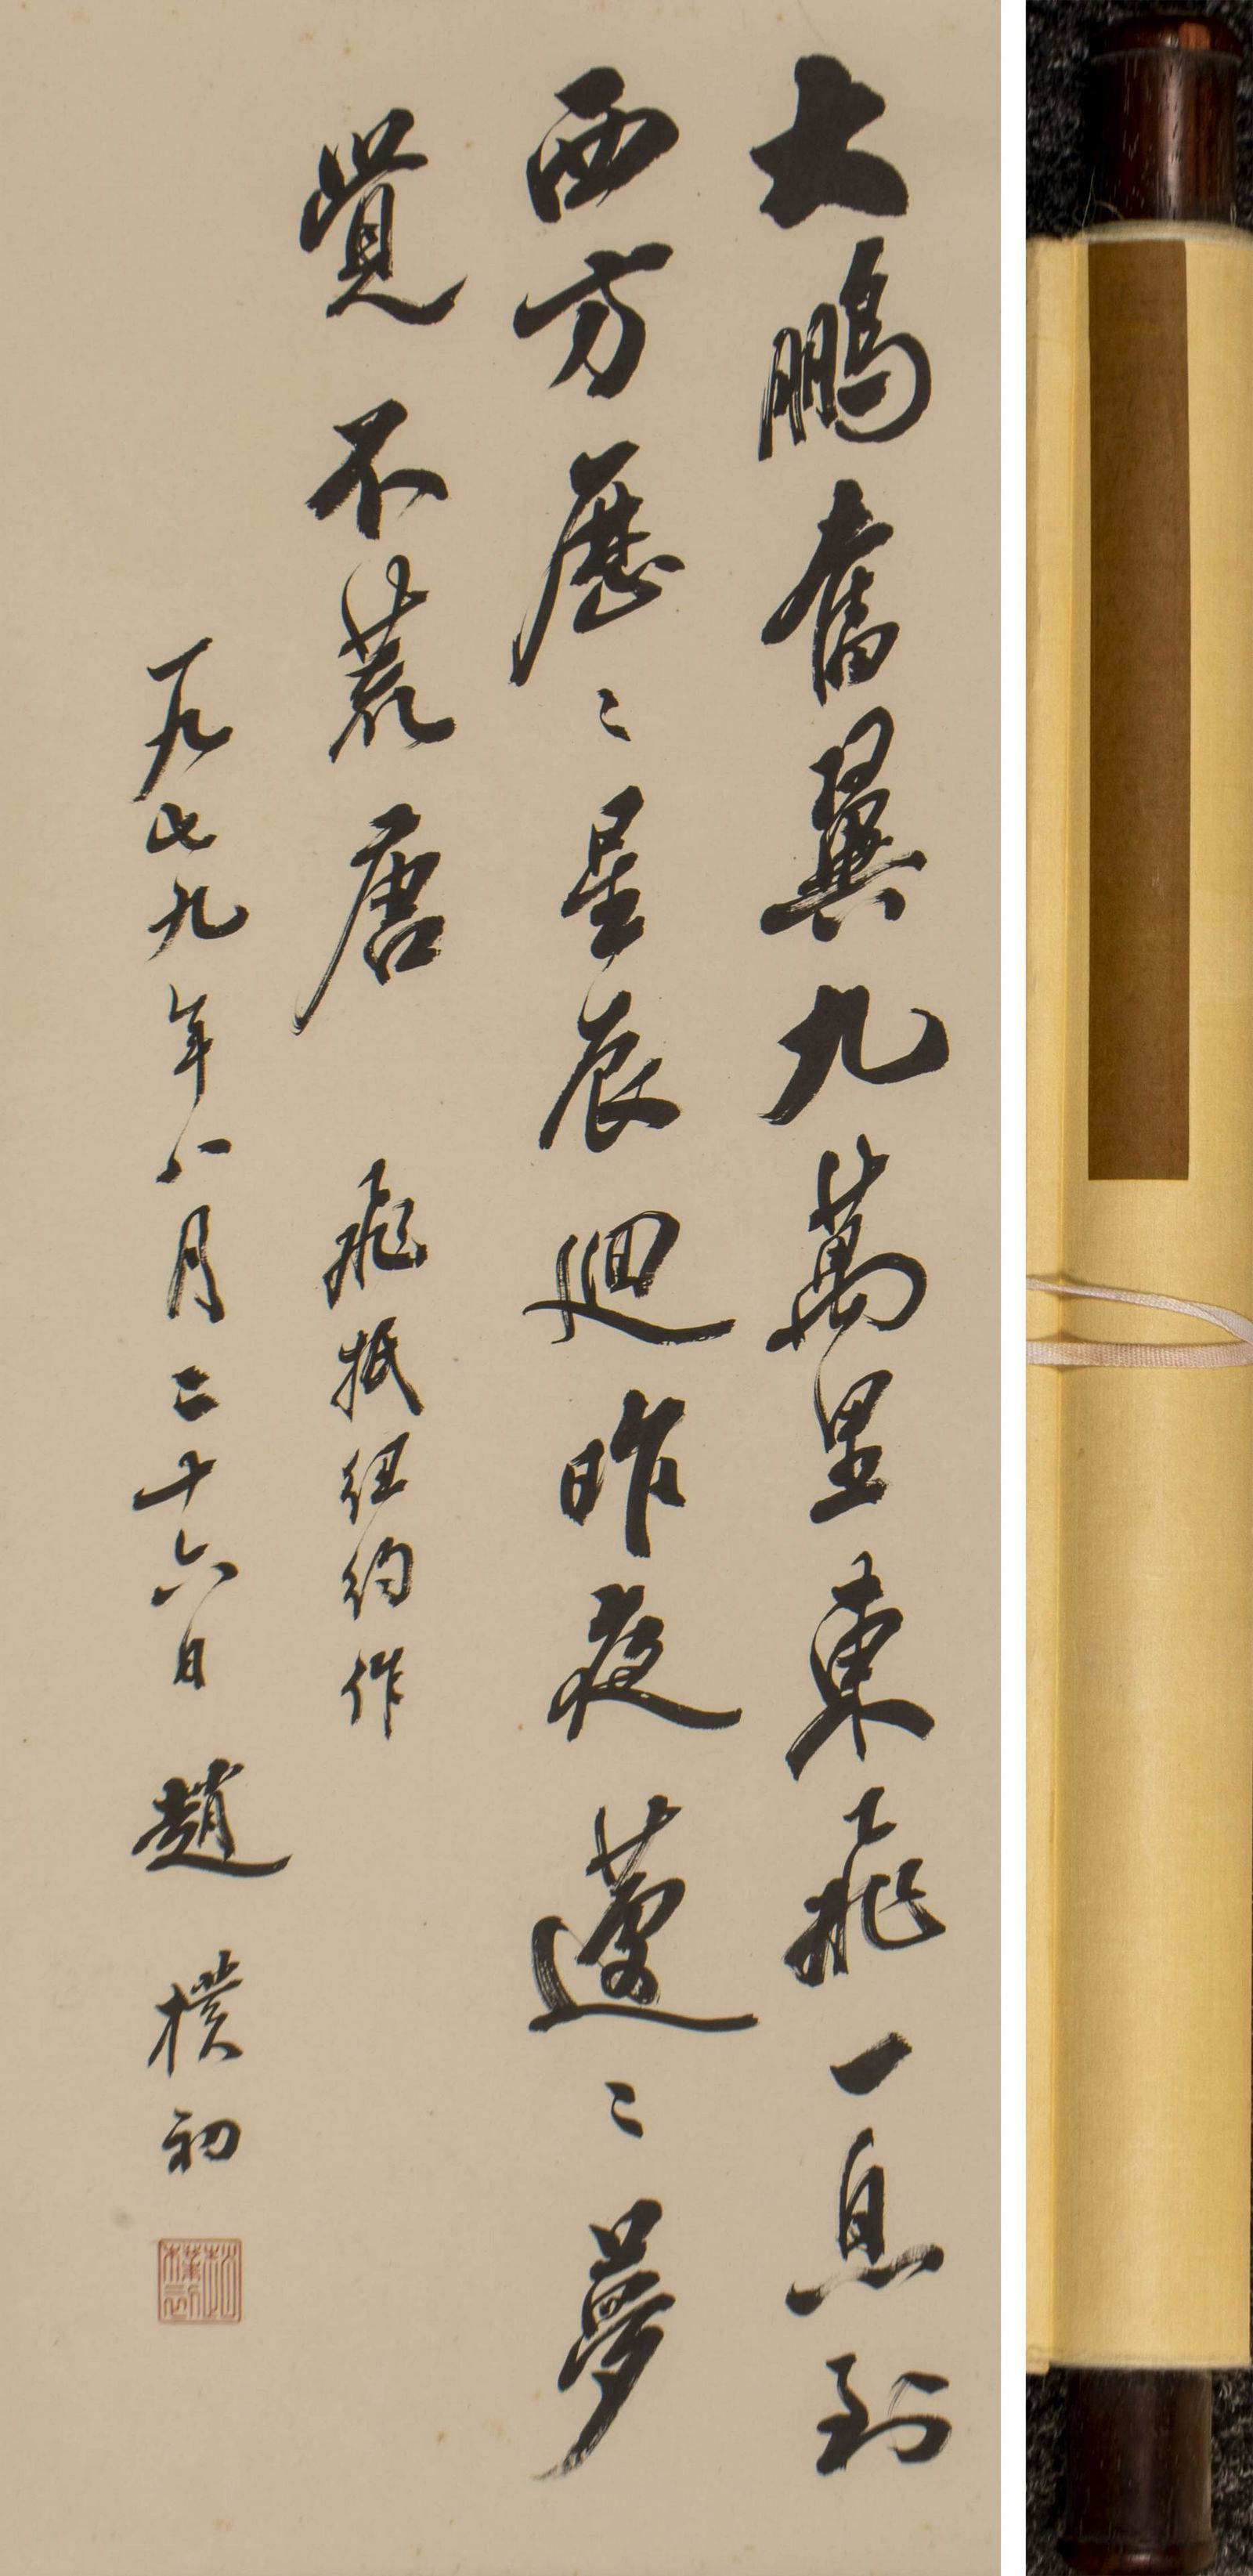 大鵬奮翼九萬里東飛一息到
西方歷〻星辰迴昨夜蘧〻夢
覺不荒唐 飛抵紐約作
一九七九年八月二十六日 趙樸初
趙樸初